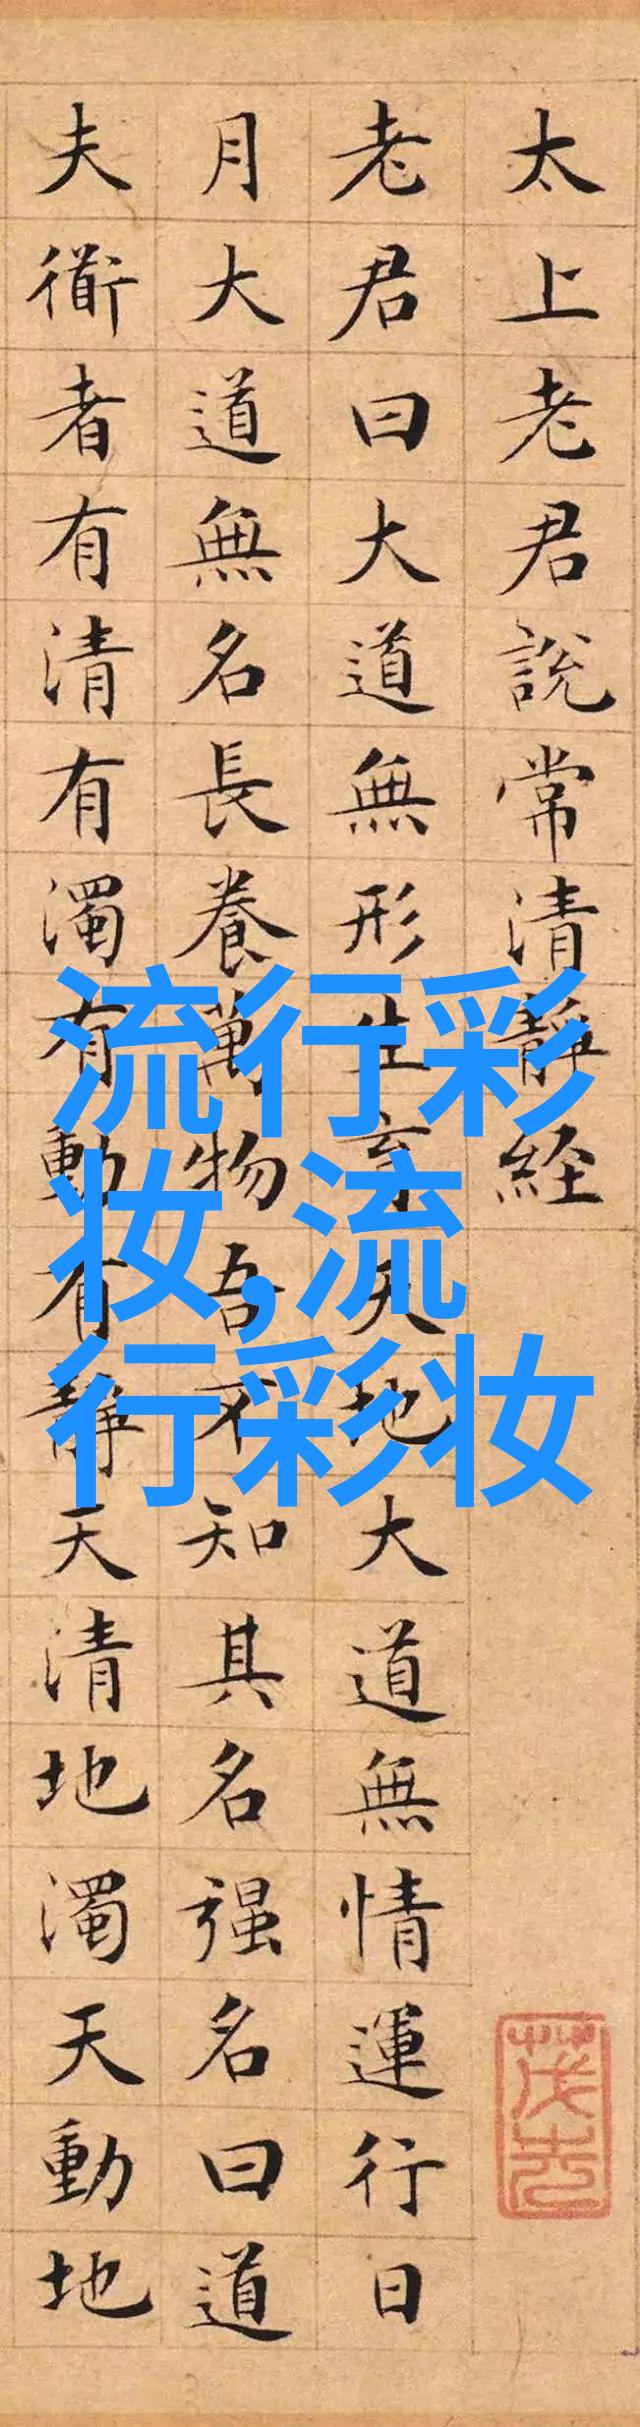 太上老君說常清靜経
老君曰大道無形生育天地大道無情運行日
月大道無名長養萬物吾不知其名强名曰道
夫衜者有清有濁有動有靜天清地濁天動地
流行彩
妆,流
行彩妆